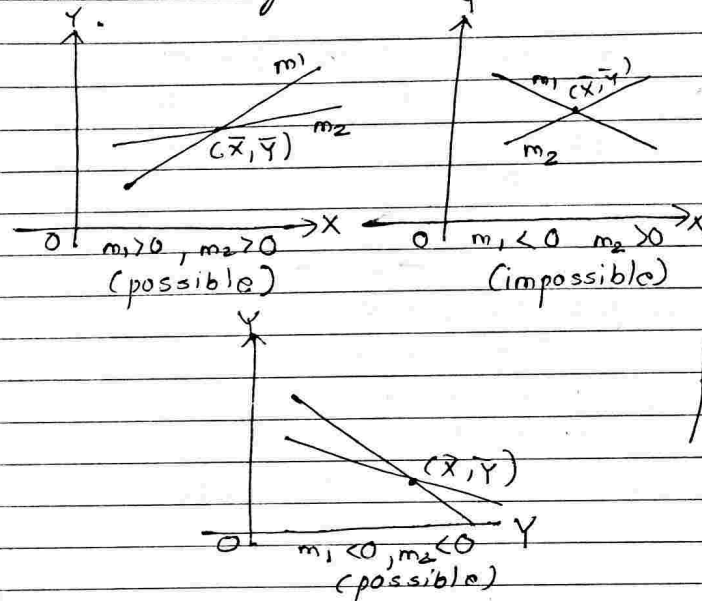 Y.
m1
m2
(X̄, Ȳ)
O
X
m1>0 , m2>0
(possible)
Y
m1 (X̄,Ȳ)
m2
O
X
m1 <0 m2 >0
(impossible)
Y
(X̄, Ȳ)
O
Y
m1 <0 , m2 <0
(possible)